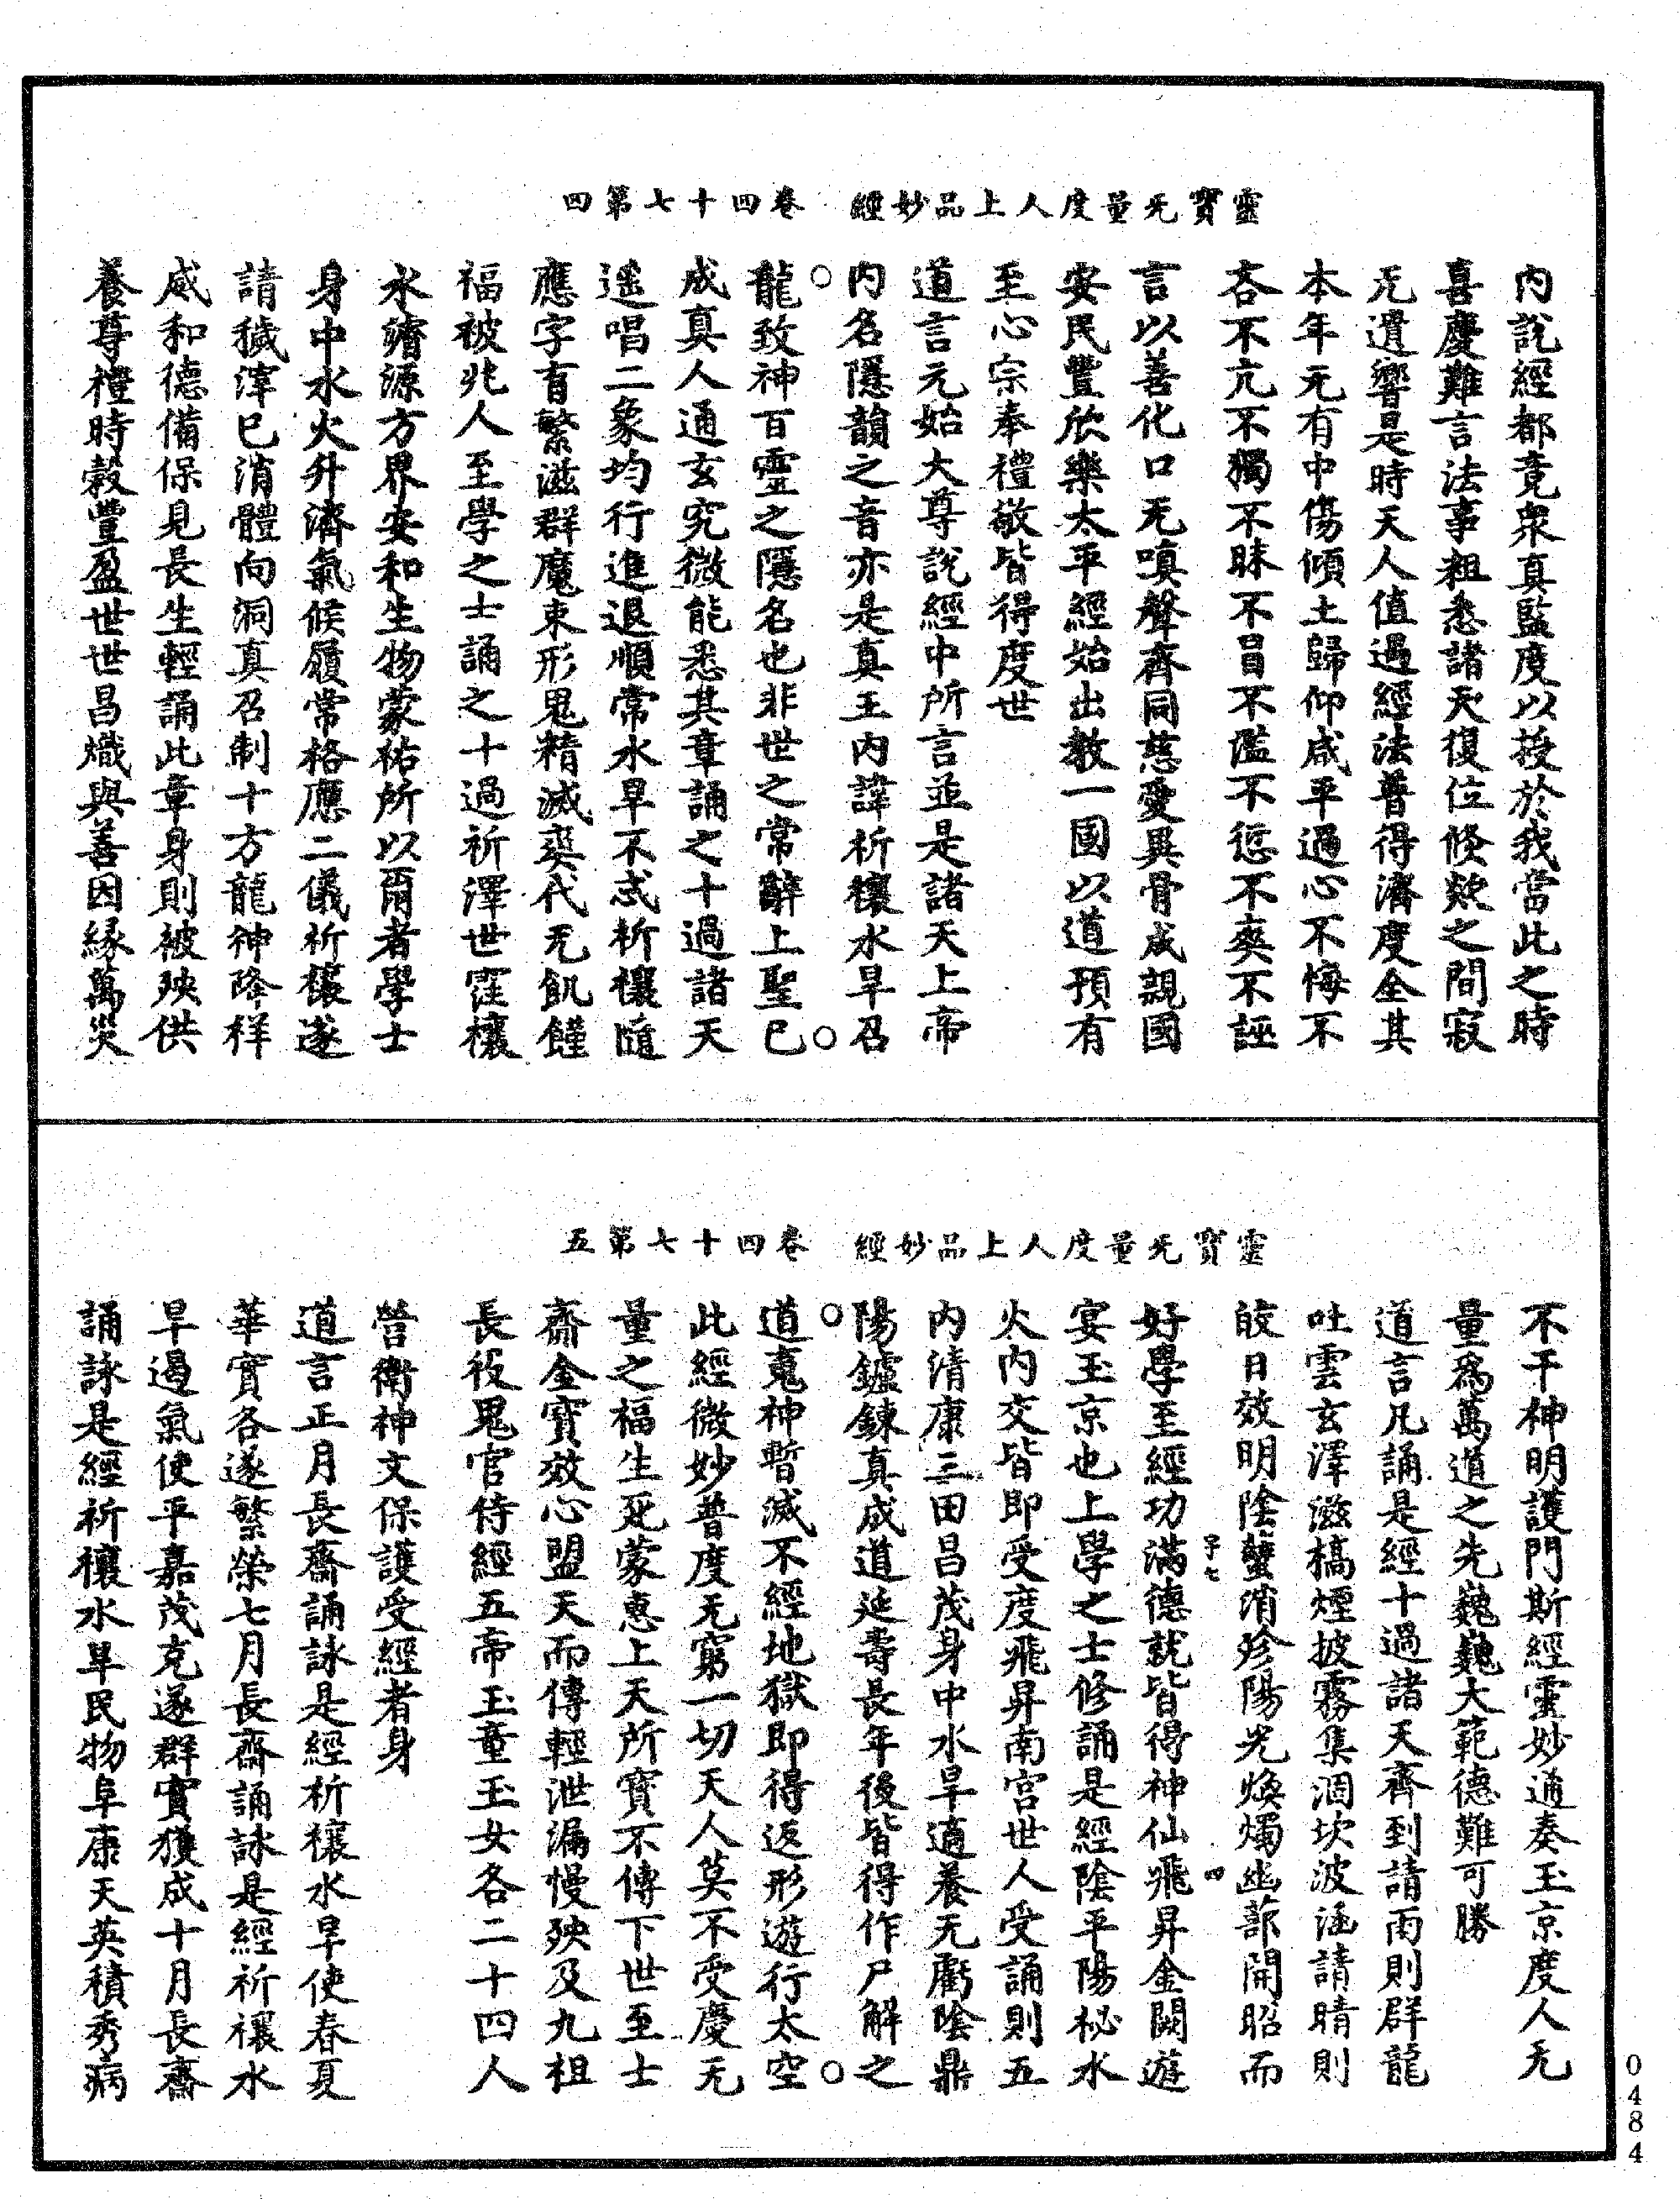 靈寶无量度人上品妙經　卷四十七第四
內說經都竟衆真監度以授於我當此之時
喜慶難言法事粗悉諸天復位倐欻之間寂
无遺響是時天人值遇經法普得濟度全其
本年无有中傷傾土歸仰咸平過心不悔不
吝不亢不獨不昧不冒不濫不愆不爽不誣
言以善化口无嗔聲齊同慈愛異骨成親國
安民豐欣樂太平經始出教一國以道預有
至心宗奉禮敬皆得度世
道言元始大尊說經中所言並是諸天上帝
內名隱韻之音亦是真王內諱祈穰水旱召
龍致神百靈之隱名也非世之常辭上聖已
成真人通玄究微能悉其章誦之十過諸天
遥唱二象均行進退順常水旱不忒祈穰隨
應字育繁滋群魔束形鬼精滅爽代无飢饉
福被兆人至學之士誦之十過祈澤世霑穰
水濬源方界安和生物蒙祐所以爾者學士
身中水火升濟氣候履常格應二儀祈穰遂
請穢滓已消體向洞真召制十方龍神降祥
感和德備保見長生輕誦此章身則被殃供
養尊禮時穀豐盈世世昌熾與善因緣萬災
靈寶无量度人上品妙經　卷四十七第五
不干神明護門斯經靈妙通奏玉京度人无
量爲萬道之先巍巍大範德難可勝
道言凡誦是經十過諸天齊到請雨則群龍
吐雲玄澤滋槁煙披霧集涸坎波涵請晴則
皎日效明陰蠥消殄陽光煥燭幽蔀開昭而
字七　四
好學至經功滿德就皆得神仙飛昇金闕遊
宴玉京也上學之士修誦是經陰平陽秘水
火內交皆即受度飛昇南宮世人受誦則五
內清康三田昌茂身中水旱適養无虧陰鼎
陽鑪鍊真成道延壽長年後皆得作尸解之
道䰟神暫滅不經地獄即得返形遊行太空
此經微妙普度无窮一切天人莫不受慶无
量之福生死蒙惠上天所寶不傳下世至士
齋金寶效心盟天而傳輕泄漏慢殃及九祖
長役鬼官侍經五帝玉童玉女各二十四人
營衛神文保護受經者身
道言正月長齋誦詠是經祈穰水旱使春夏
華實各遂繁榮七月長齋誦詠是經祈禳水
旱遏氣使平嘉茂克遂群實獲成十月長齋
誦詠是經祈穰水旱民物阜康天英積秀病
0484